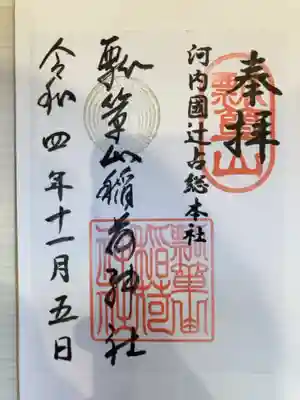 奉拝
瓢箪山
河内國辻占総本社
瓢箪山稲荷神社
瓢箪山稲荷神社
令和四年十一月五日